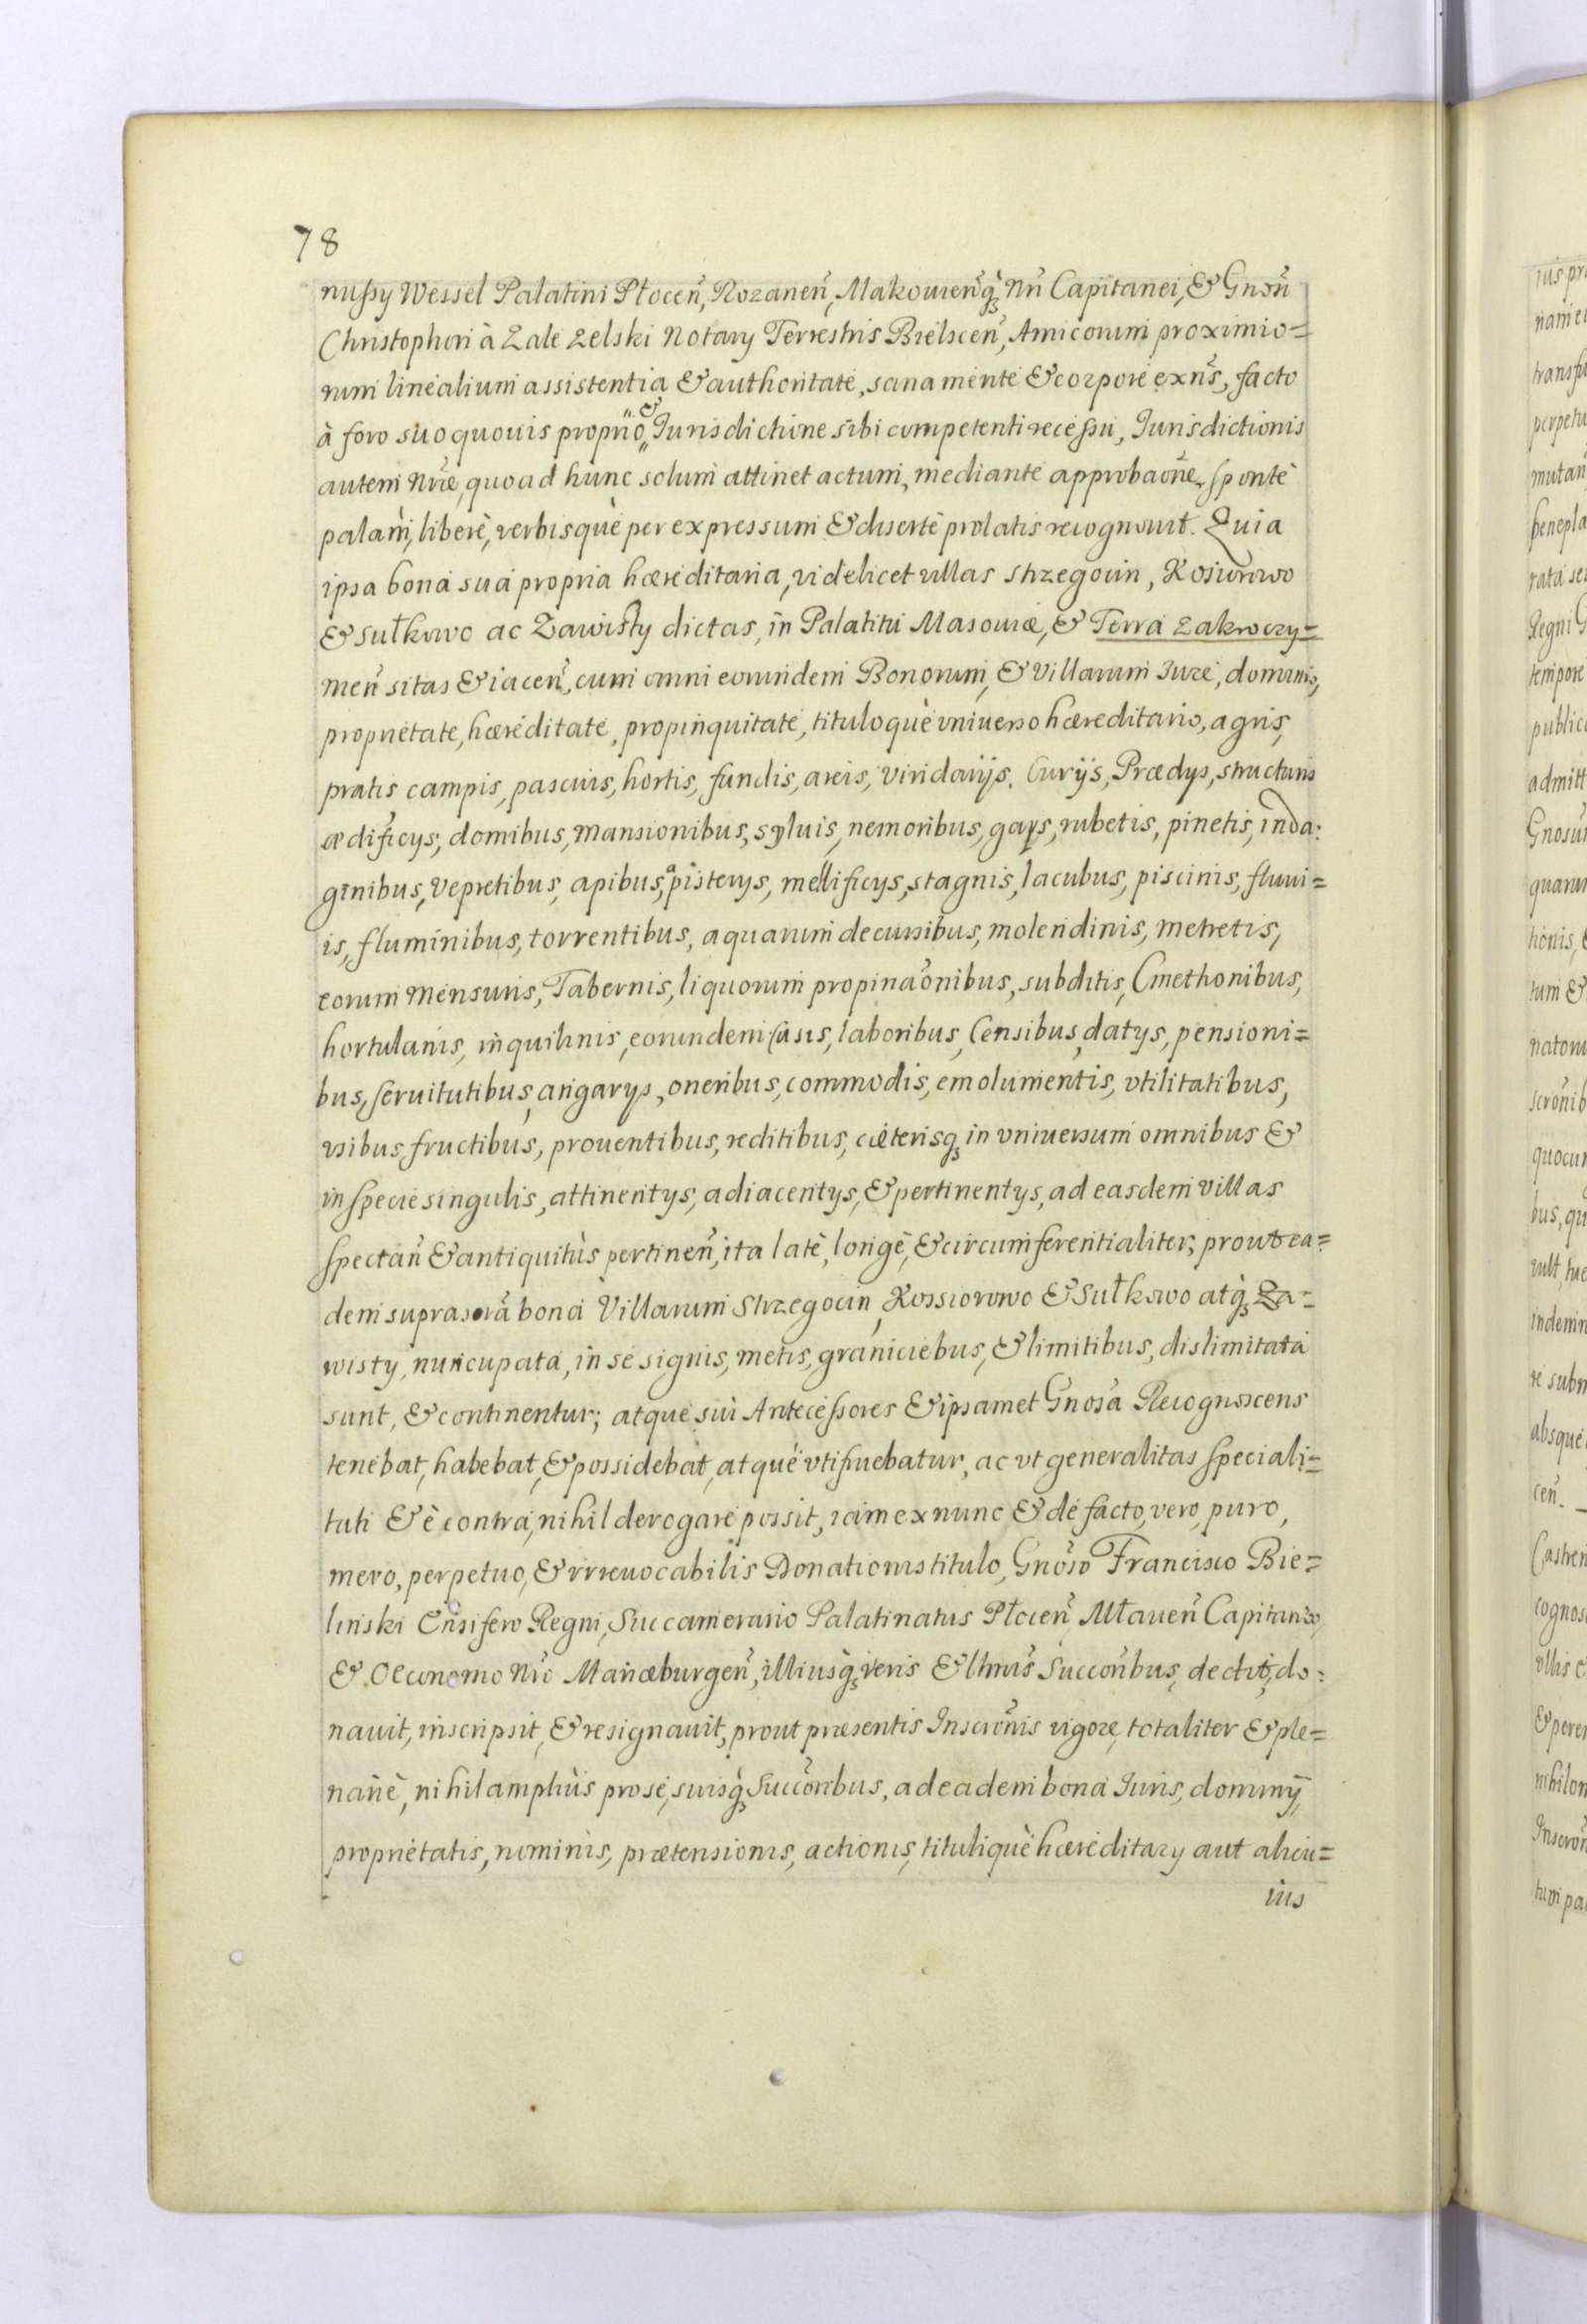 78
nussy Wessel Palatini Płoceñ, Rozaneñ, Makouieñq́ꝫ Nrĩ Capitanei, & Gnosñ
Christophori à Zale Zelski Notary Terrestris Bielsceñ, Amicorum proximio=
rum linealium assistentia & authoritate, sana mente & corpore exñs, facto
à foro suo quouis proprio, & Iurisdictione sibi competenti recessu, Iurisdictionis
autem Nrãe, quoad hunc solum attinet actum, mediante approbaõne, sponte
palàm, liberè, verbisquè per expressum & disertè prolatis recognouit. Quia
ipsa bona sua propria hæreditaria, videlicet villas Strzegocin, Kosiorowo
& Sułkowo ac Zawisty dictas, in Palatitu Masouiæ, & Terra Zakroczy=
meñ sitas & iaceñ, cum omni eorundem Bonorum, & Villarum Iure, dominio,
proprietate, hæreditate, propinquitate, tituloquè vniuerso hæreditario, agris,
pratis campis, pascuis, hortis, fundis, areis, viridarijs, Curijs, Prædys, structuris
ædificys, domibus, mansionibus, syluis, nemoribus, gays, rubetis, pinetis, inda:
ginibus, vepretibus, apibus, apisterys, mellificys, stagnis, lacubus, piscinis, fluui=
is, fluminibus, torrentibus, aquarum decursibus, molendinis, metretis,
eorum mensuris, Tabernis, liquorum propinaõnibus, subditis, Cmethonibus,
hortulanis, inquilinis, eorundem casis, laboribus, Censibus, datys, pensioni=
bus, seruitutibus, angarys, oneribus, commodis, emolumentis, vtilitatibus,
vsibus fructibus, prouentibus, reditibus, cæterisqꝫ in vniuersum omnibus &
in specie singulis, attinentys, adiacentys, & pertinentys, ad easdem villas
spectañ & antiquitùs pertineñ, ita latè, longè, & circumferentialiter, prout ea=
dem suprascrã bona Villarum Strzegocin, Kossiorowo & Sułkowo atq́ꝫ Za=
wisty, nuncupata, in se signis, metis, graniciebus, & limitibus, dislimitata
sunt, & continentur; atque sui Antecessores & ipsamet Gnosa Recognoscens
tenebat, habebat, & possidebat, atquè vtifruebatur, ac vt generalitas speciali=
tati & è contra, nihil derogare possit, iam ex nunc & de facto, vero, puro,
mero, perpetuo, & irreuocabilis Donationis titulo, Gnoso Francisco Bie=
linski Ensifero Regni, Succamerario Palatinatus Płoceñ Mławeñ Capitaneo,
& Oeconomo Nrõ Mariæburgeñ, illiusq́ꝫ veris & lthmis Succoribus, dedit, do:
nauit, inscripsit, & resignauit, prout præsentis Inscrõnis vigore, totaliter & ple=
nariè, nihil ampliùs pro se, suisq́ꝫ Succoribus, ad eadem bona Iuris, dominij,
proprietatis, nominis, prætensionis, actionis, tituliquè hæreditary aut alicu=
ius